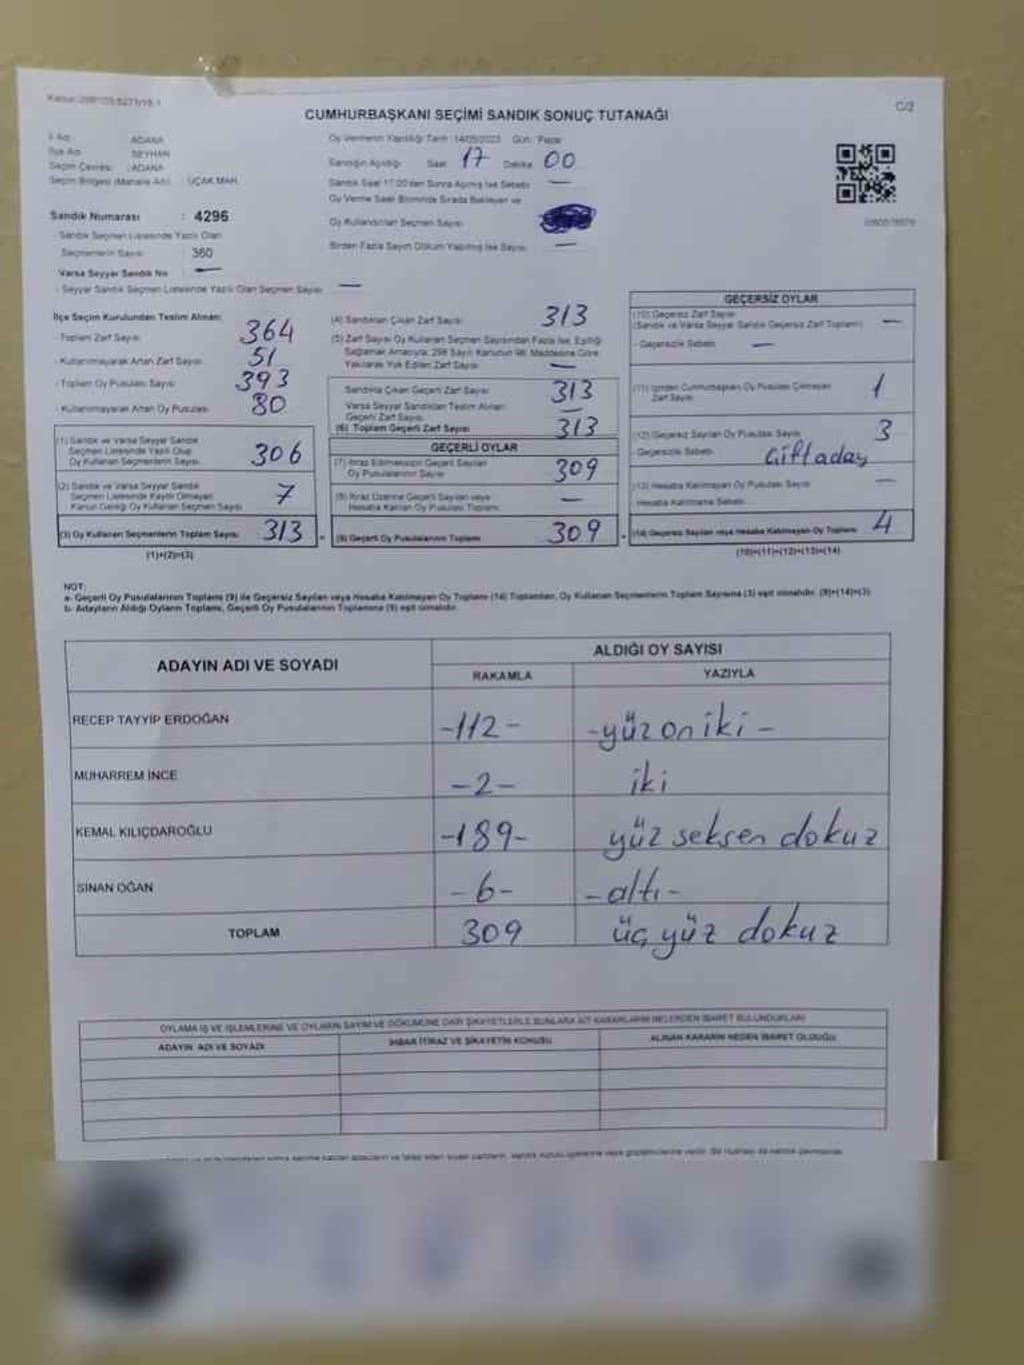 C/2
CUMHURBAŞKANI SEÇİMİ SANDIK SONUÇ TUTANAĞI
İl Adı : ADANA
İlçe Adı : SEYHAN
Seçim Çevresi : ADANA
Seçim Bölgesi (Mahalle Adı) : UÇAK MAH.
Sandık Numarası : 4296
- Sandık Seçmen Listesinde Yazılı Olan
Seçmenlerin Sayısı : 360
Varsa Seyyar Sandık No : —
- Seyyar Sandık Seçmen Listesinde Yazılı Olan Seçmen Sayısı : —
Oy Vermenin Yapıldığı Tarih : 14/05/2023 Gün : Pazar
Sandığın Açıldığı Saat 17 Dakika 00
Sandık Saat 17.00'den Sonra Açılmış İse Sebebi : —
Oy Verme Saati Bitiminde Sırada Bekleyen ve
Oy Kullandırılan Seçmen Sayısı :
Birden Fazla Sayım Döküm Yapılmış İse Sayısı : —
İlçe Seçim Kurulundan Teslim Alınan:
- Toplam Zarf Sayısı : 364
- Kullanılmayarak Artan Zarf Sayısı : 51
- Toplam Oy Pusulası Sayısı : 393
- Kullanılmayarak Artan Oy Pusulası : 80
(1) Sandık ve Varsa Seyyar Sandık
Seçmen Listesinde Yazılı Olup
Oy Kullanan Seçmenlerin Sayısı : 306
(2) Sandık ve Varsa Seyyar Sandık
Seçmen Listesinde Kayıtlı Olmayan
Kanun Gereği Oy Kullanan Seçmen Sayısı : 7
(3) Oy Kullanan Seçmenlerin Toplam Sayısı : 313
(1)+(2)=(3)
(4) Sandıktan Çıkan Zarf Sayısı : 313
(5) Zarf Sayısı Oy Kullanan Seçmen Sayısından Fazla İse, Eşitliği
Sağlamak Amacıyla, 298 Sayılı Kanunun 98. Maddesine Göre
Yakılarak Yok Edilen Zarf Sayısı : —
Sandıkta Çıkan Geçerli Zarf Sayısı : 313
Varsa Seyyar Sandıktan Teslim Alınan
Geçerli Zarf Sayısı : —
(6) Toplam Geçerli Zarf Sayısı : 313
GEÇERLİ OYLAR
(7) İtiraz Edilmeksizin Geçerli Sayılan
Oy Pusulalarının Sayısı : 309
(8) İtiraz Üzerine Geçerli Sayılan veya
Hesaba Katılan Oy Pusulası Toplamı : —
(9) Geçerli Oy Pusulalarının Toplamı : 309
GEÇERSİZ OYLAR
(10) Geçersiz Zarf Sayısı
(Sandık ve Varsa Seyyar Sandık Geçersiz Zarf Toplamı) : —
- Geçersizlik Sebebi : —
(11) İçinden Cumhurbaşkanı Oy Pusulası Çıkmayan
Zarf Sayısı : 1
(12) Geçersiz Sayılan Oy Pusulası Sayısı : 3
- Geçersizlik Sebebi : Çift aday
(13) Hesaba Katılmayan Oy Pusulası Sayısı : —
Hesaba Katılmama Sebebi :
(14) Geçersiz Sayılan veya Hesaba Katılmayan Oy Toplamı : 4
(10)+(11)+(12)+(13)=(14)
NOT:
a- Geçerli Oy Pusulalarının Toplamı (9) ile Geçersiz Sayılan veya Hesaba Katılmayan Oy Toplamı (14) Toplamları, Oy Kullanan Seçmenlerin Toplam Sayısına (3) eşit olmalıdır. (9)+(14)=(3)
b- Adayların Aldığı Oyların Toplamı, Geçerli Oy Pusulalarının Toplamına (9) eşit olmalıdır.
ADAYIN ADI VE SOYADI
ALDIĞI OY SAYISI
RAKAMLA YAZIYLA
RECEP TAYYİP ERDOĞAN -112- -yüz on iki-
MUHARREM İNCE -2- iki
KEMAL KILIÇDAROĞLU -189- yüz seksen dokuz
SİNAN OĞAN -6- -altı-
TOPLAM 309 üç yüz dokuz
OYLAMA İŞ VE İŞLEMLERİNE VE OYLARIN SAYIM VE DÖKÜMÜNE DAİR ŞİKAYETLERLE BUNLARA AİT KARARLARIN NELERDEN İBARET BULUNDUKLARI
ADAYIN ADI VE SOYADI
İHBAR İTİRAZ VE ŞİKAYETİN KONUSU
ALINAN KARARIN NEDEN İBARET OLDUĞU